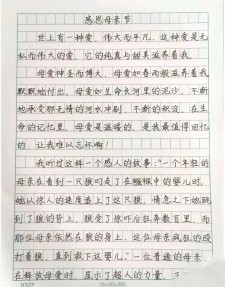 感恩母亲节
世上有一种爱,伟大而平凡,这种爱是无
私而伟大的爱,它的纯真与甜美滋养着我。
母爱神圣而博大,母爱如春雨般滋养着我
默默地付出,母爱如生命长河里的泥沙,不断
地承受那无情的河水冲刷,不断的积淀,在生
命的记忆里,母爱是温暖的,是我最值得回忆
的,让我难以忘怀啊!
我听过这样一个感人的故事:"一个年轻的
母亲在看到一只狼叼走了在襁褓中的婴儿时,
她以惊人的速度追上了这只狼,情急之下她跳
到了狼的背上,狼受了惊吓后狂奔数百里,而
那位母亲依然在狼的身上,这位母亲疯狂的殴
打着狼,直到救下这婴儿。"一位普通的母亲
在释放母爱时,显示了超人的力量,
15×20=300